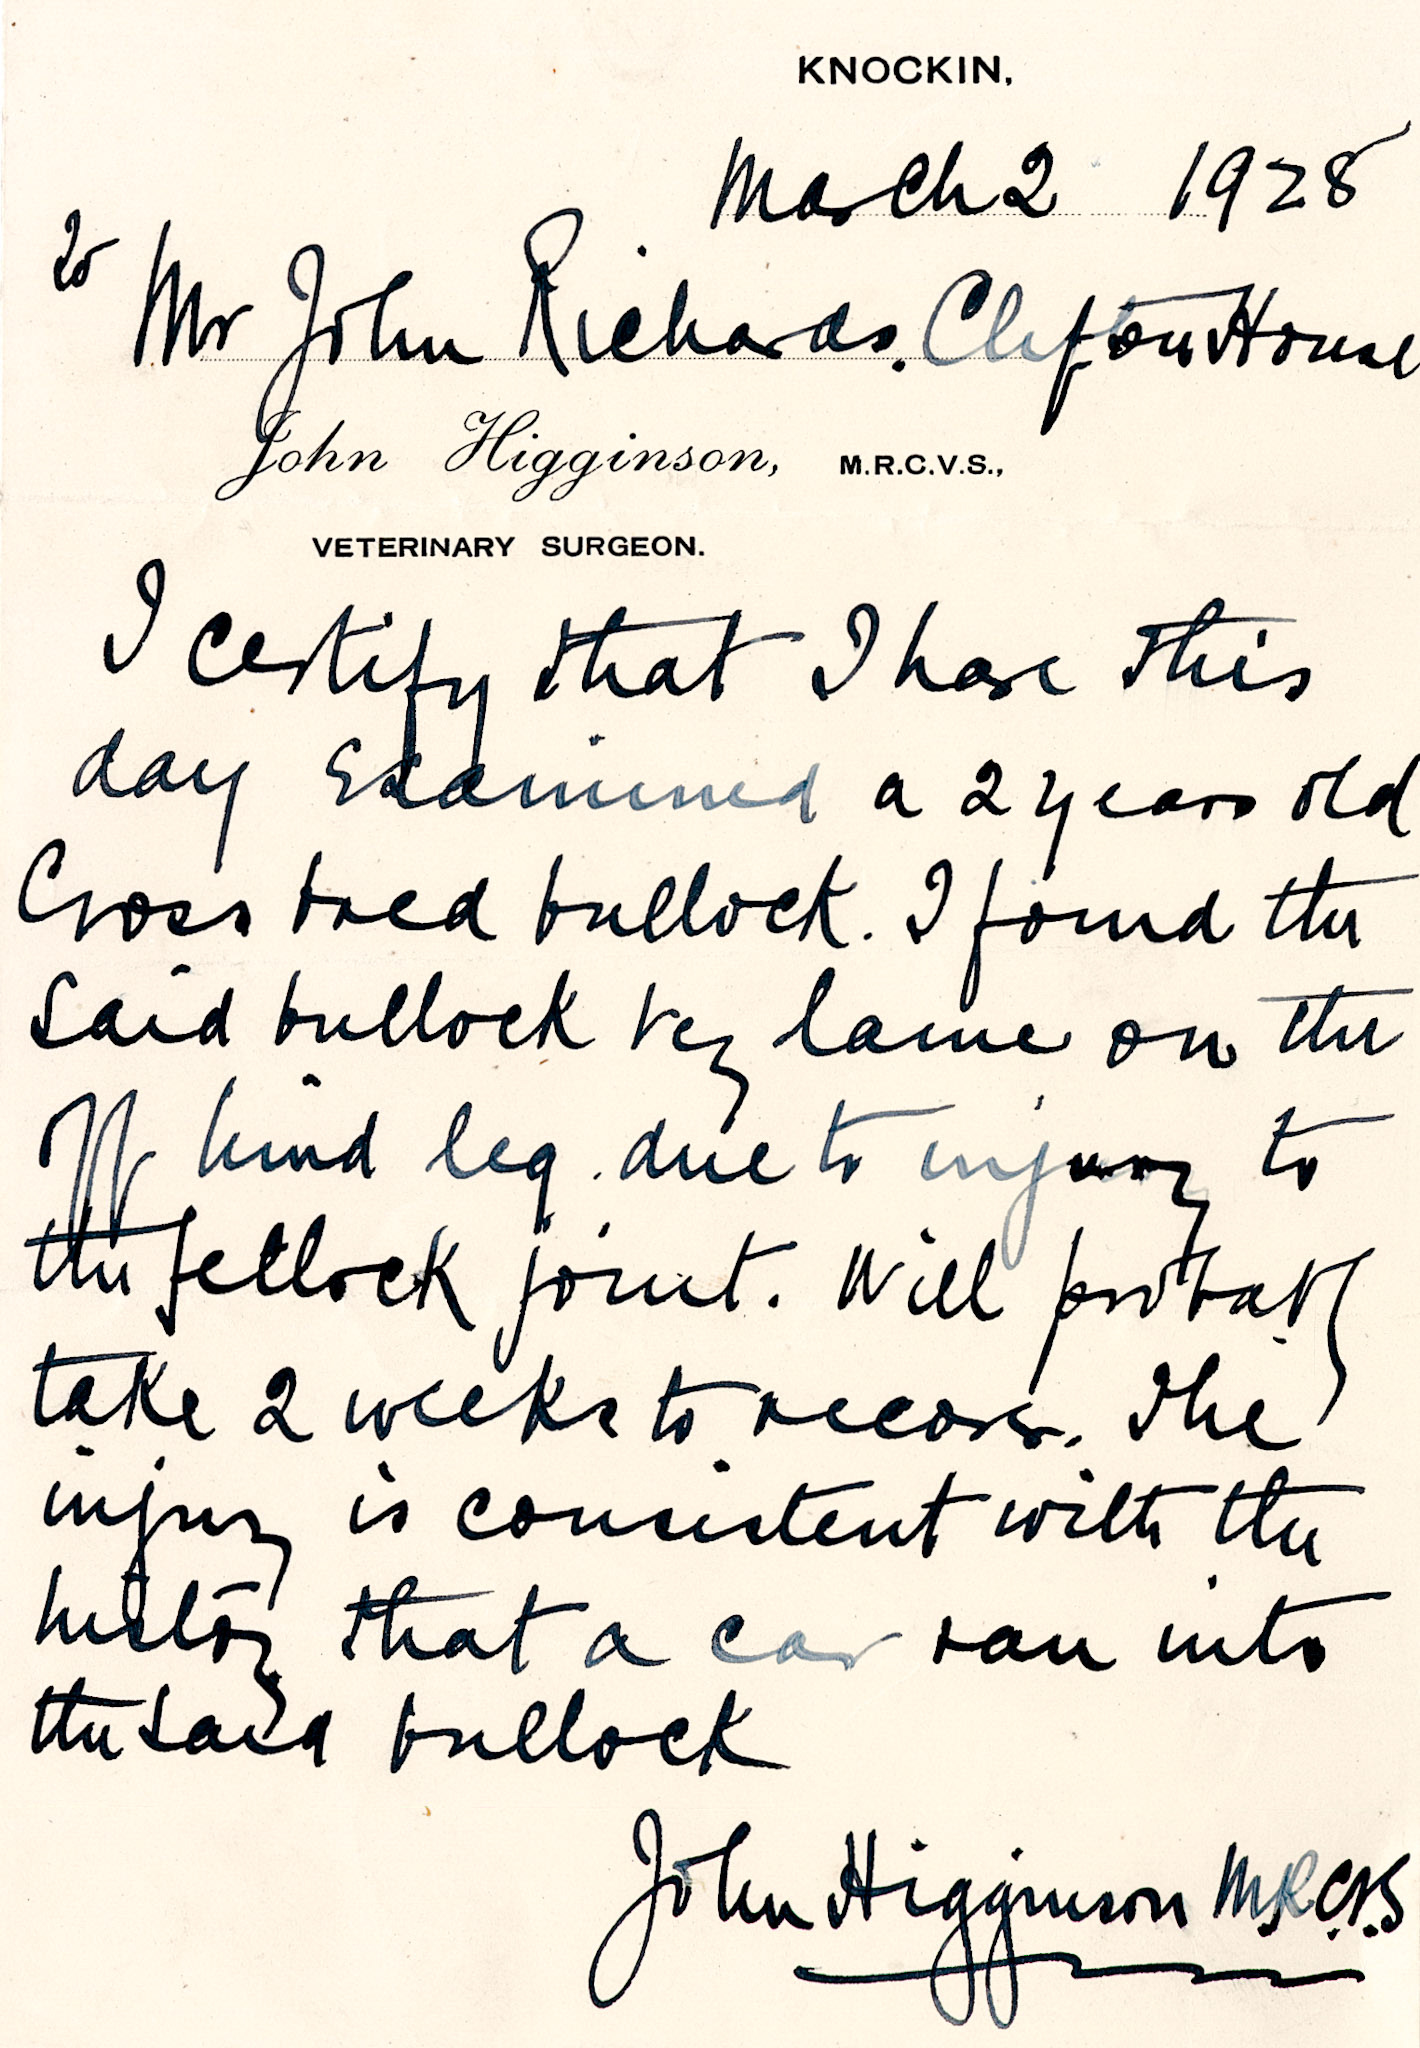 KNOCKIN,
March 2 1928
To Mr John Richards. Clifton House
John Higginson, M.R.C.V.S.,
VETERINARY SURGEON.
I certify that I have this
day Examined a 2 years old
Cross bred bullock. I found the
Said bullock very lame on the
off hind leg. due to injury to
the fetlock joint. Will probably
take 2 weeks to recover. The
injury is consistent with the
history that a car ran into
the said bullock
John Higginson M.R.C.V.S